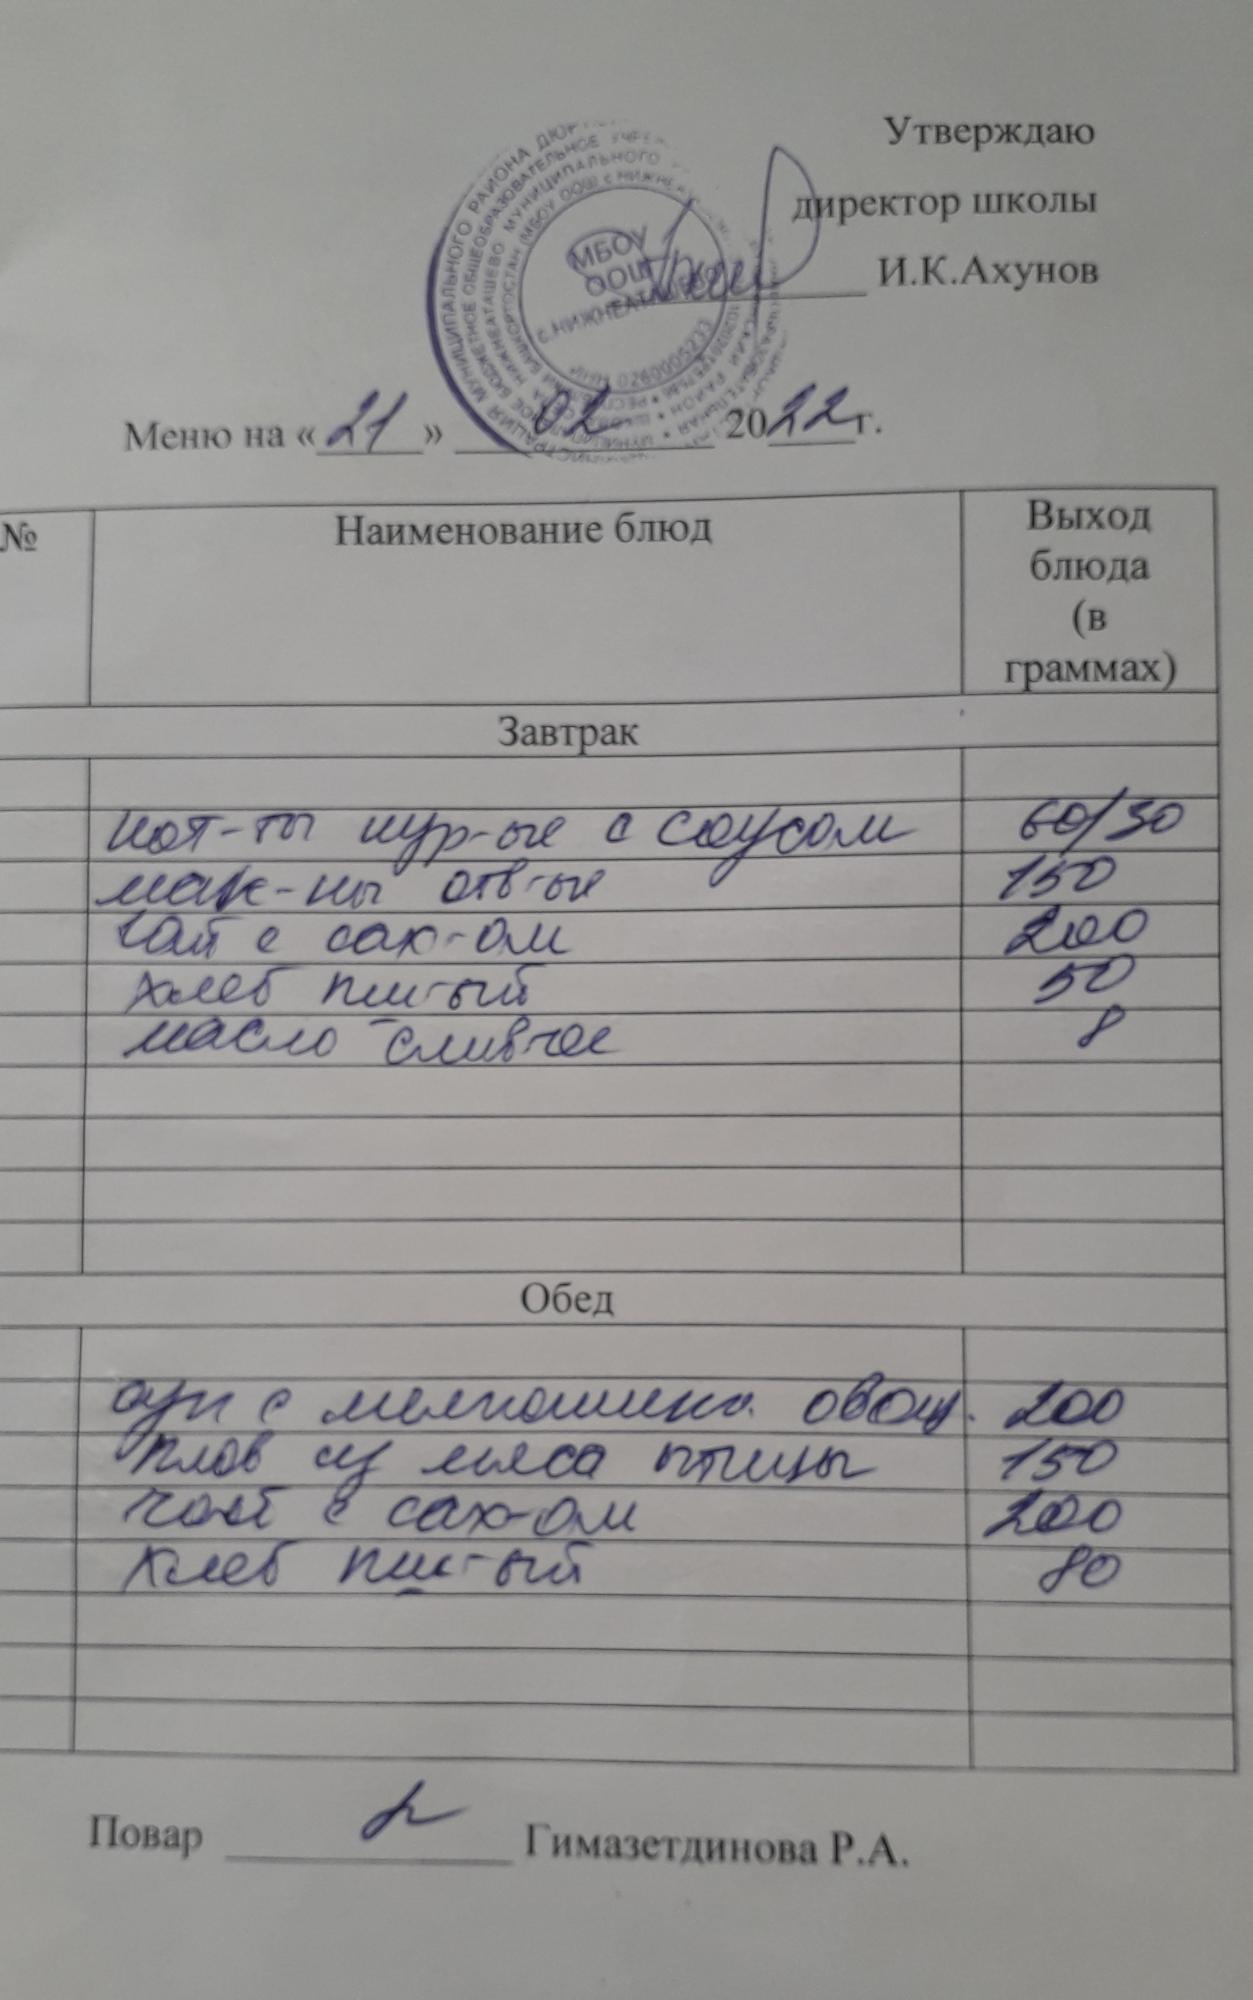 Утверждаю
директор школы
И.К.Ахунов
МБОУ
ООШ
с.НИЖНЕАТАШЕВО
ИНН 0260005233
Меню на «21» 02 2022г.
№ Наименование блюд Выход блюда (в граммах)
Завтрак
кот-ты кур-ые с соусом 60/30
мак-ны отв-ые 150
чай с сах-ом 200
хлеб пш-ый 50
масло слив-ое 8
Обед
суп с мелкошинк. овощ. 200
плов из мяса птицы 150
чай с сах-ом 200
хлеб пш-ый 80
Повар Гимазетдинова Р.А.